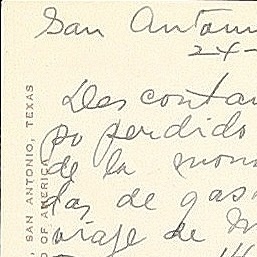 San Anton
24-
Descontan
po perdido
de la mon
das de gas
viaje de M
, SAN ANTONIO, TEXAS
D OF AMERICA